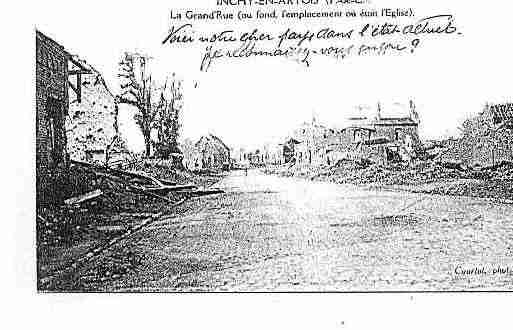 INCHY-EN-ARTOIS (P.-de-C.
La Grand'Rue (au fond, l'emplacement où était l'Eglise).
Voici notre cher pays dans l'état actuel.
reconnaissez-vous encore ?
phot.